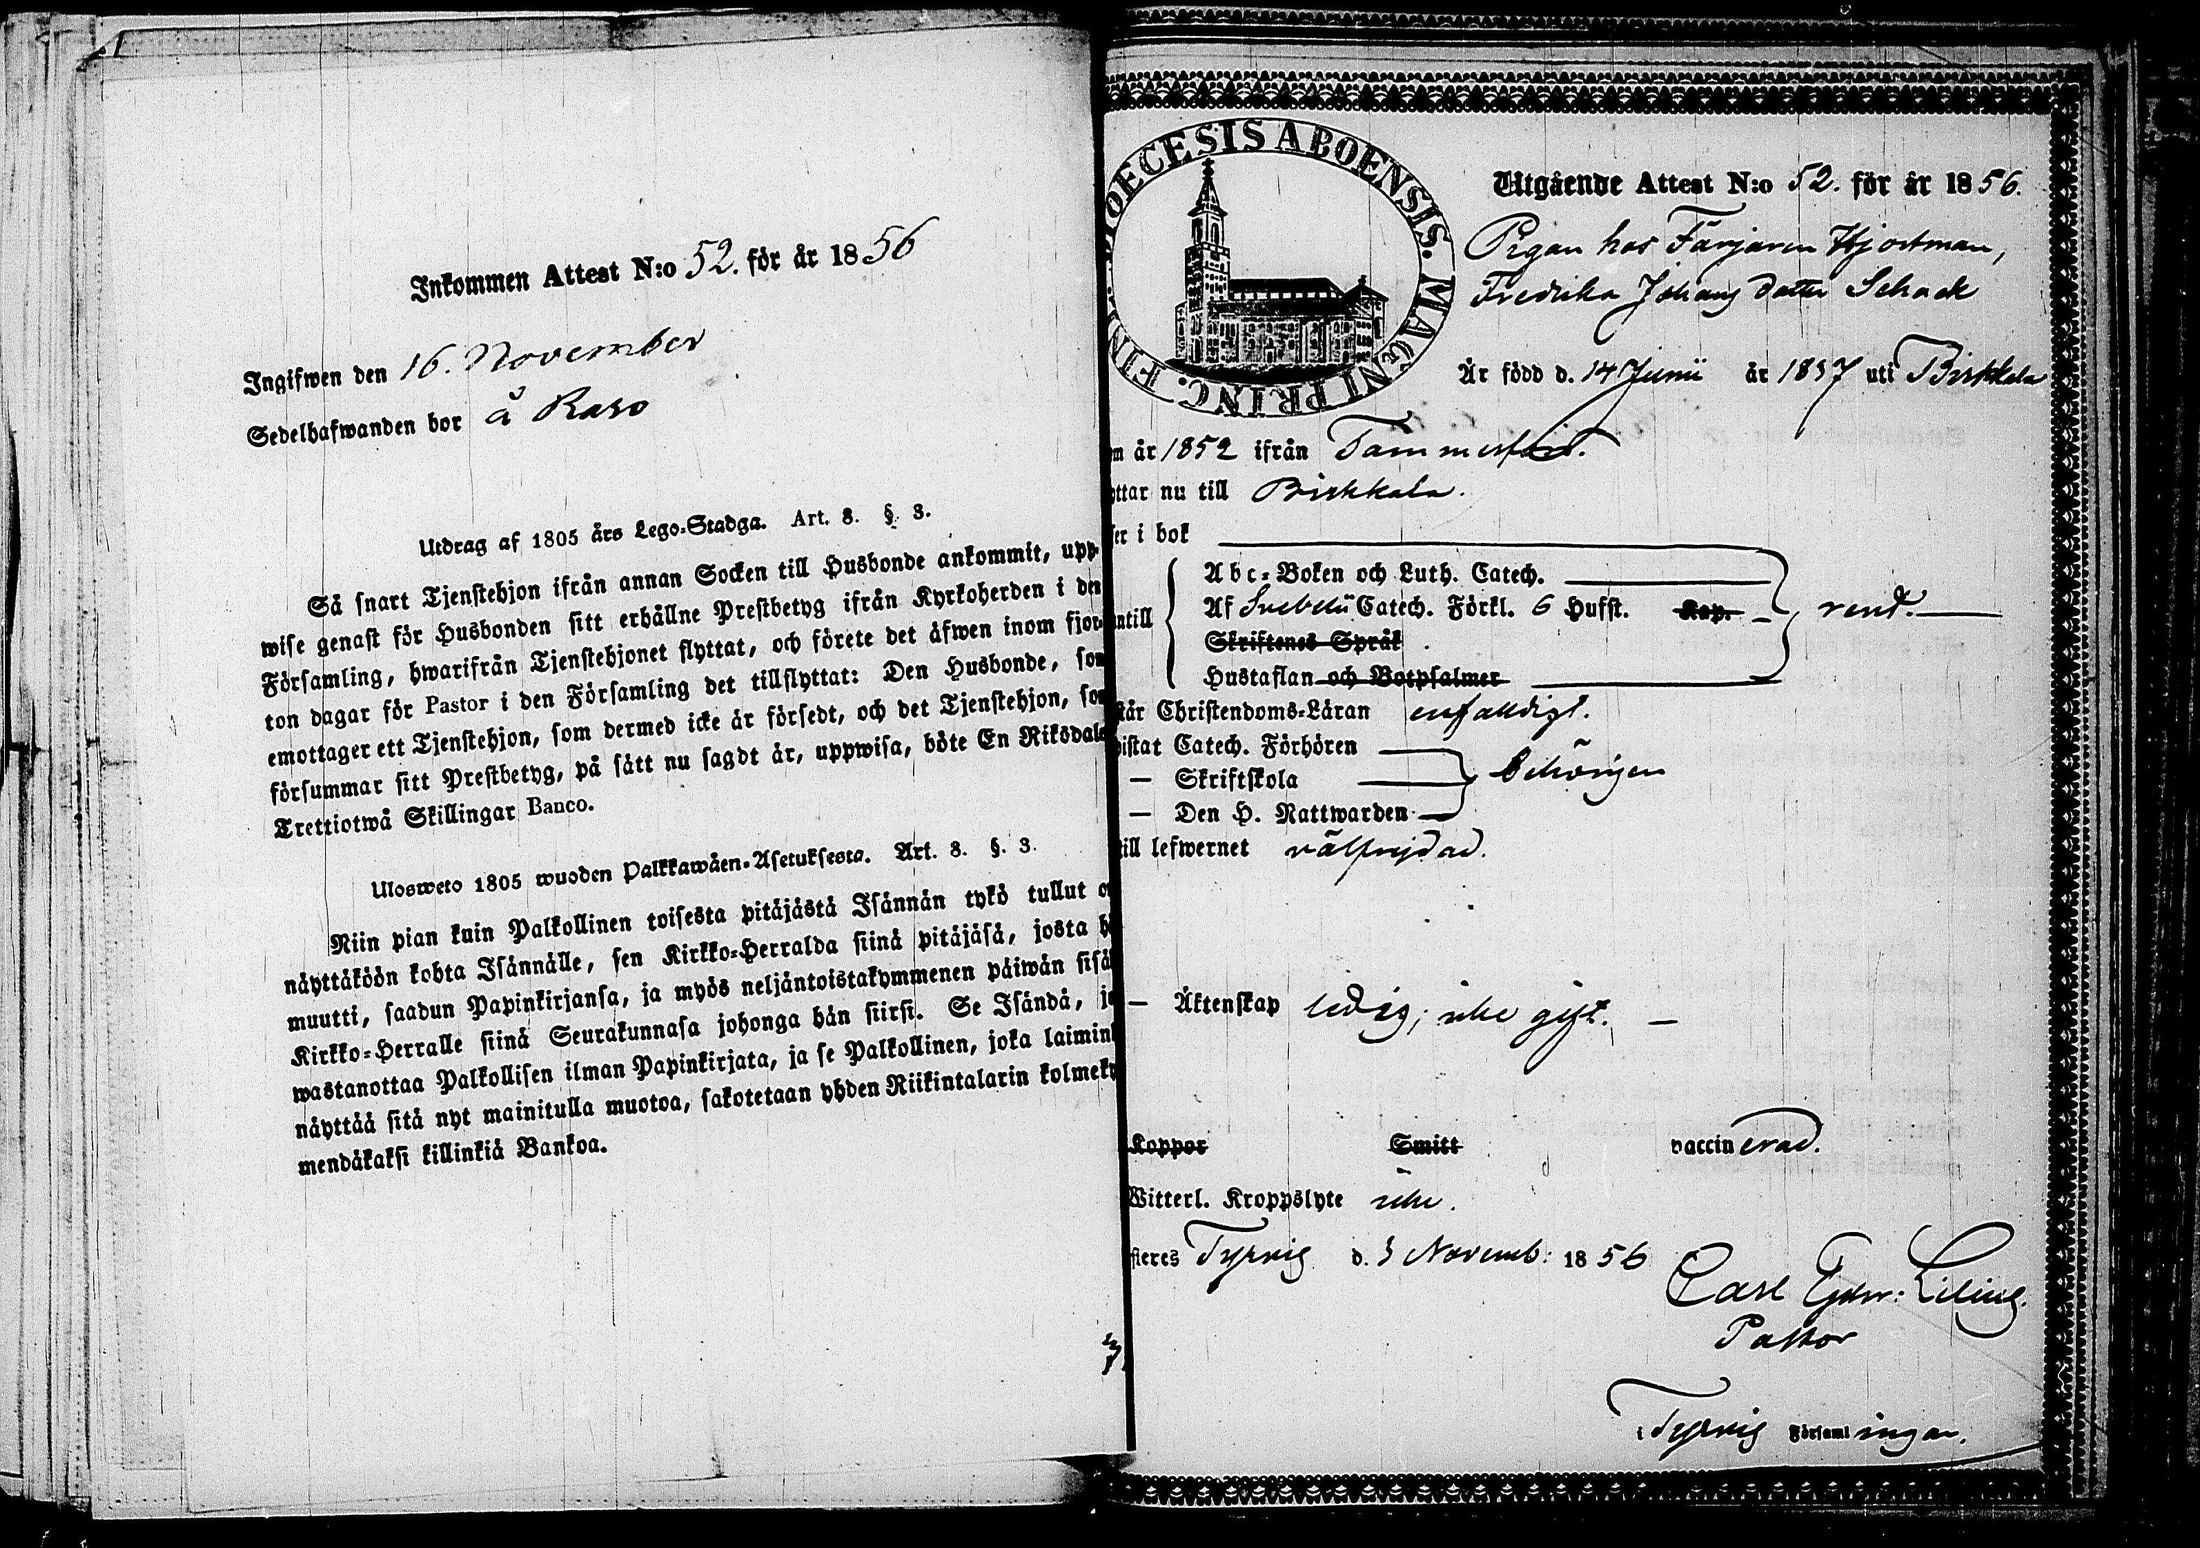 Inkommen Attest N:o 52. för år 1856
Ingifwen den 16. November
Sedelhafwanden bor å Raso
Utdrag af 1805 års Lego-Stadga. Art. 8. §. 3.
Så snart Tjenstehjon ifrån annan Socken till Husbonde ankommit, upp-
wise genast för Husbonden sitt erhållne Prestbetyg ifrån Kyrkoherden i den
Församling, hwarifrån Tjenstehjonet flyttat, och förete det äfwen inom fjor-
ton dagar för Pastor i den Församling det tillflyttat: Den Husbonde, som
emottager ett Tjenstehjon, som dermed icke är försedt, och det Tjenstehjon, so
försummar sitt Prestbetyg, på sätt nu sagdt är, uppwisa, böte En Riksdale
Trettiotwå Skillingar Banco.
Ulosweto 1805 wuoden Palkkawäen-Asetuksesta. Art. 8. §. 3.
Niin pian kuin Palkollinen toisesta pitäjästä Isännän tykö tullut o
näyttäköön kohta Isännälle, sen Kirkko-Herralda siinä pitäjäsä, josta h
muutti, saadun Papinkirjansa, ja myös neljäntoistakymmenen päiwän sisä
Kirkko-Herralle siinä Seurakunnasa johonga hän siirsi. Se Isändä, j
wastanottaa Palkollisen ilman Papinkirjata, ja se Palkollinen, joka laimin
näyttää sitä nyt mainitulla muotoa, sakotetaan yhden Riikintalarin kolmeky
mendäkaksi killinkiä Bankoa.
DIOECESIS ABOENSIS. MAGNI PRINC. FIN
Utgående Attest N:o 52. för år 1856.
Pigan hos Färjaren Hjortman,
Fredrika Johans dotter Schack
Är född d. 14 Junii år 1837 uti Birkkala
m år 1852 ifrån Tammerfors.
ttar nu till Birkkala.
er i bok
Abc-Boken och Luth. Catech.
ntill Af Svebelii Catech. Förkl. 6 Hufst. Kap. rent.
Skriftenes Språk
Hustaflan och Botpsalmer
står Christendoms-Läran enfaldigt.
istat Catech. Förhören
— Skriftskola behörigen
— Den H. Nattwarden
till lefwernet välfrejdad.
— Äktenskap ledig; icke gift. —
Koppor Smitt vaccinerad.
Witterl. Kroppslyte icke.
steres Tyrvis d. 3 Novemb: 1856
Carl Lilius.
Pastor
i Tyrvis Församlingar.